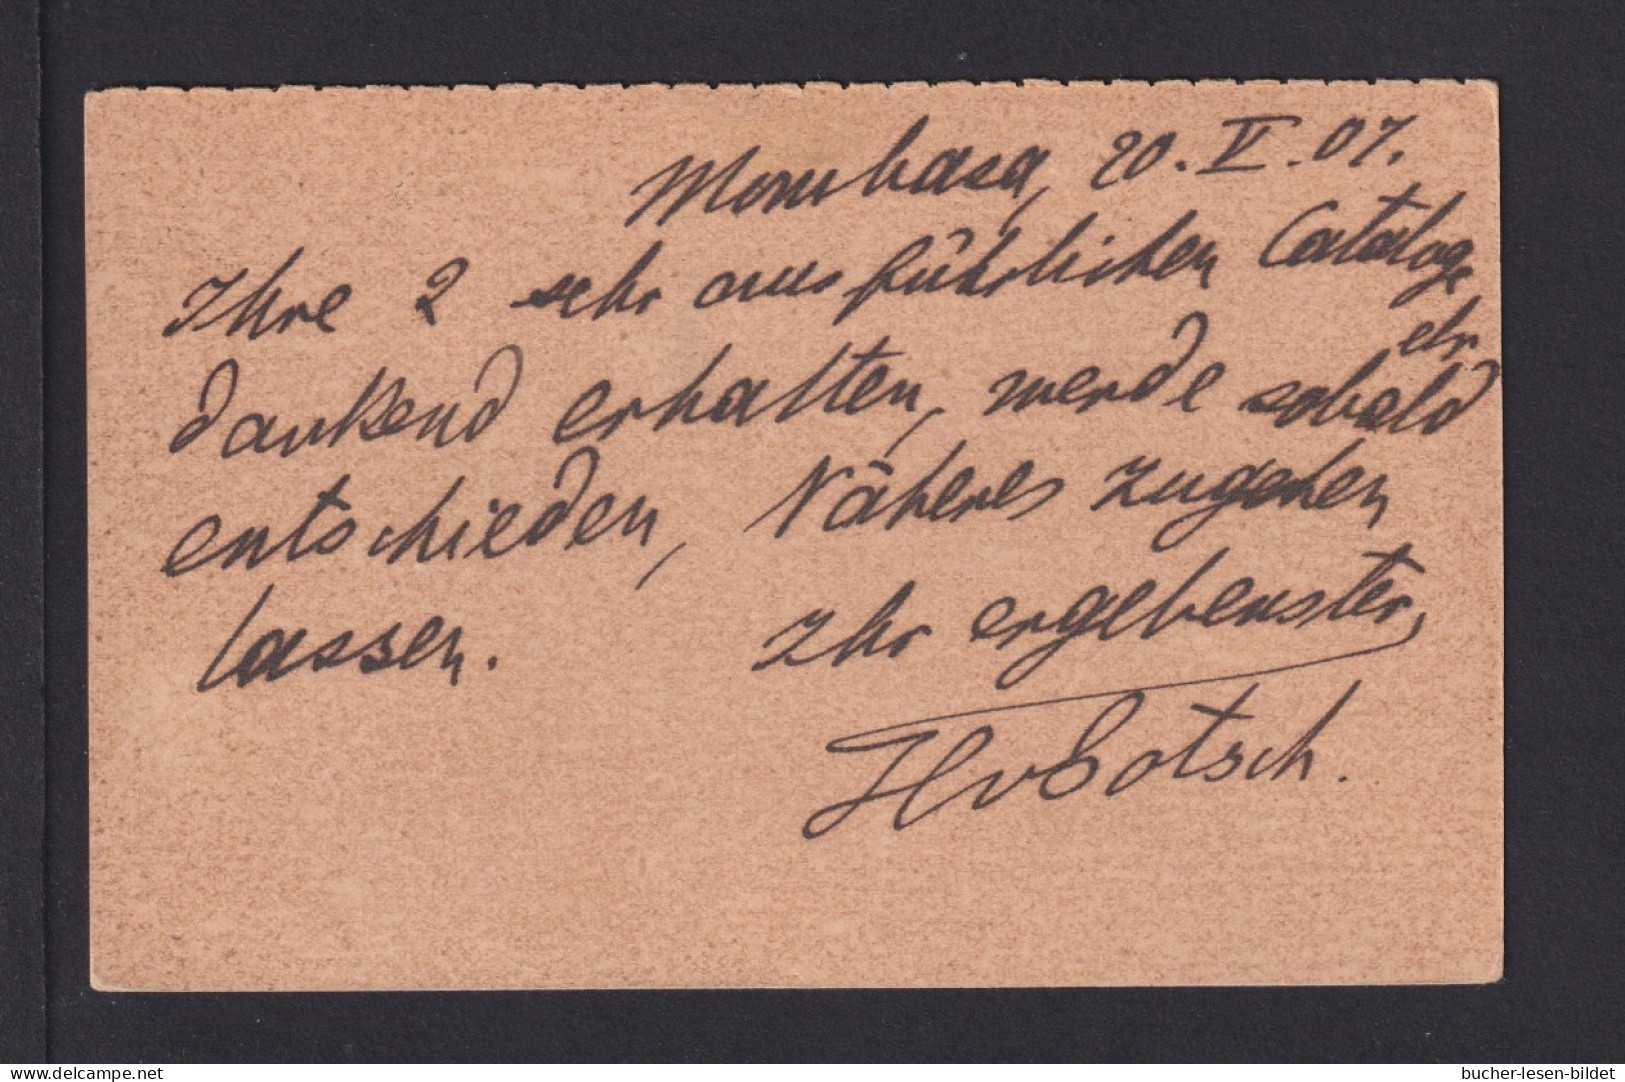 Mombasa, 20. V. 07.
Ihre 2 sehr ausführlichen Cataloge
dankend erhalten, werde sobald
entschieden, Näheres zugehen
lassen. Ihr ergebenster,
delcampe.net
bucher-lesen-bildet